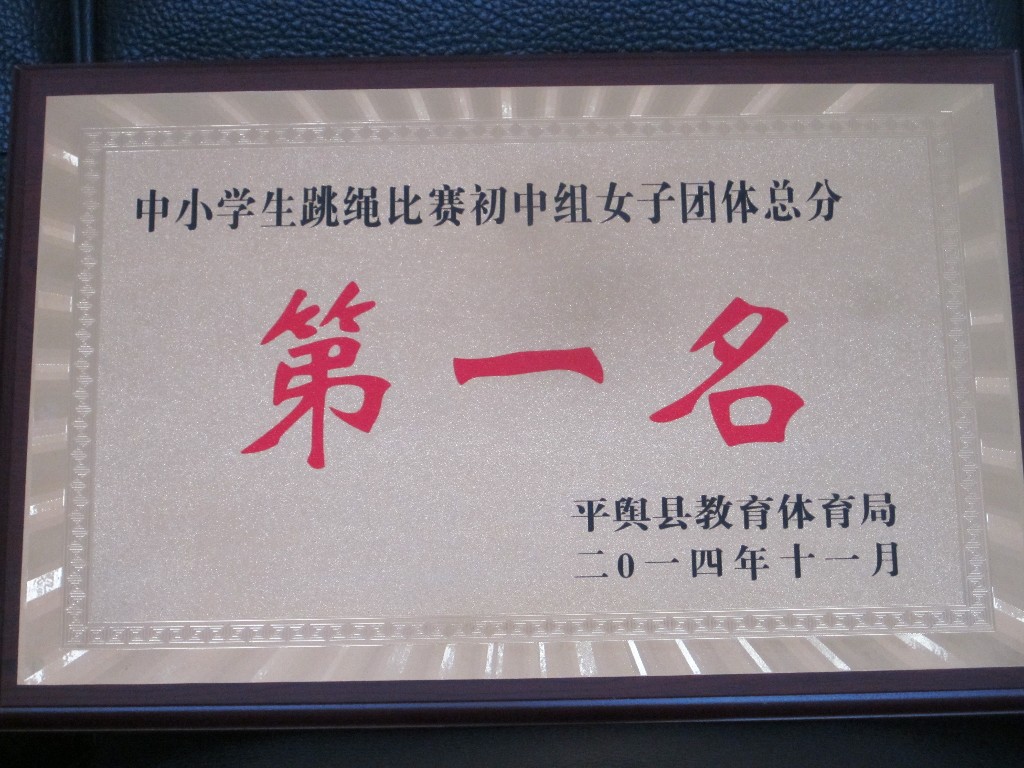 中小学生跳绳比赛初中组女子团体总分
第一名
平舆县教育体育局
二0一四年十一月